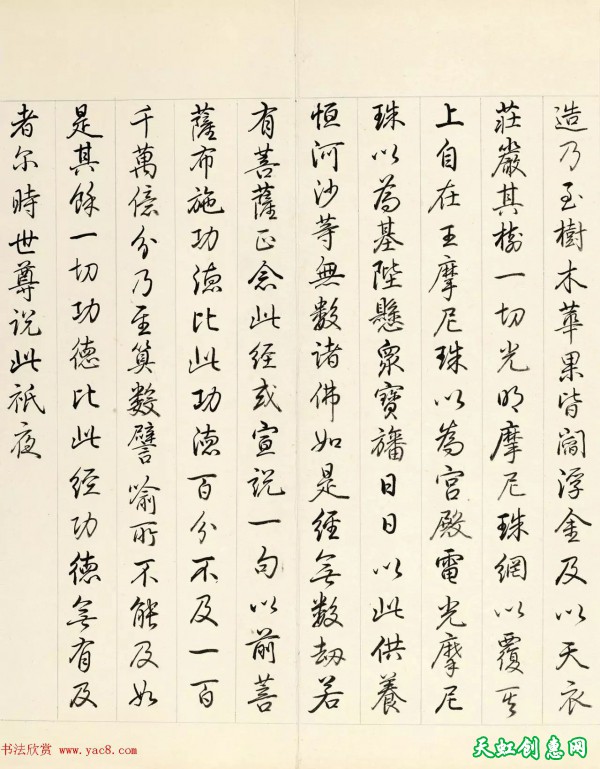 造乃至樹木華果皆閻浮金及以天衣
莊嚴其樹一切光明摩尼珠網以覆其
上自在王摩尼珠以為宮殿電光摩尼
珠以為基陛懸衆寶旛日日以此供養
恒河沙等無數諸佛如是經無數劫若
有菩薩正念此経或宣説一句以前菩
薩布施功德比此功德百分不及一百
千萬億分乃至算數譬喻所不能及如
是其餘一切功德比此経功德無有及
者尔時世尊说此祇夜
书法欣赏 www.yac8.com
天虹创惠网